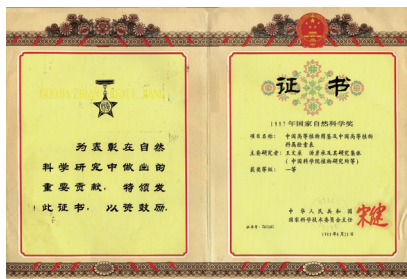 为表彰在自然
科学研究中做出的
重要贡献,特颁发
此证书,以资鼓励。
证书
1987年国家自然科学奖
项目名称: 中国高等植物图鉴及中国高等植物
科属检索表
主要研究者: 王文采 汤彦承及其研究集体
(中国科学院植物研究所等)
获奖等级: 一等
中华人民共和国
国家科学技术委员会主任
宋健